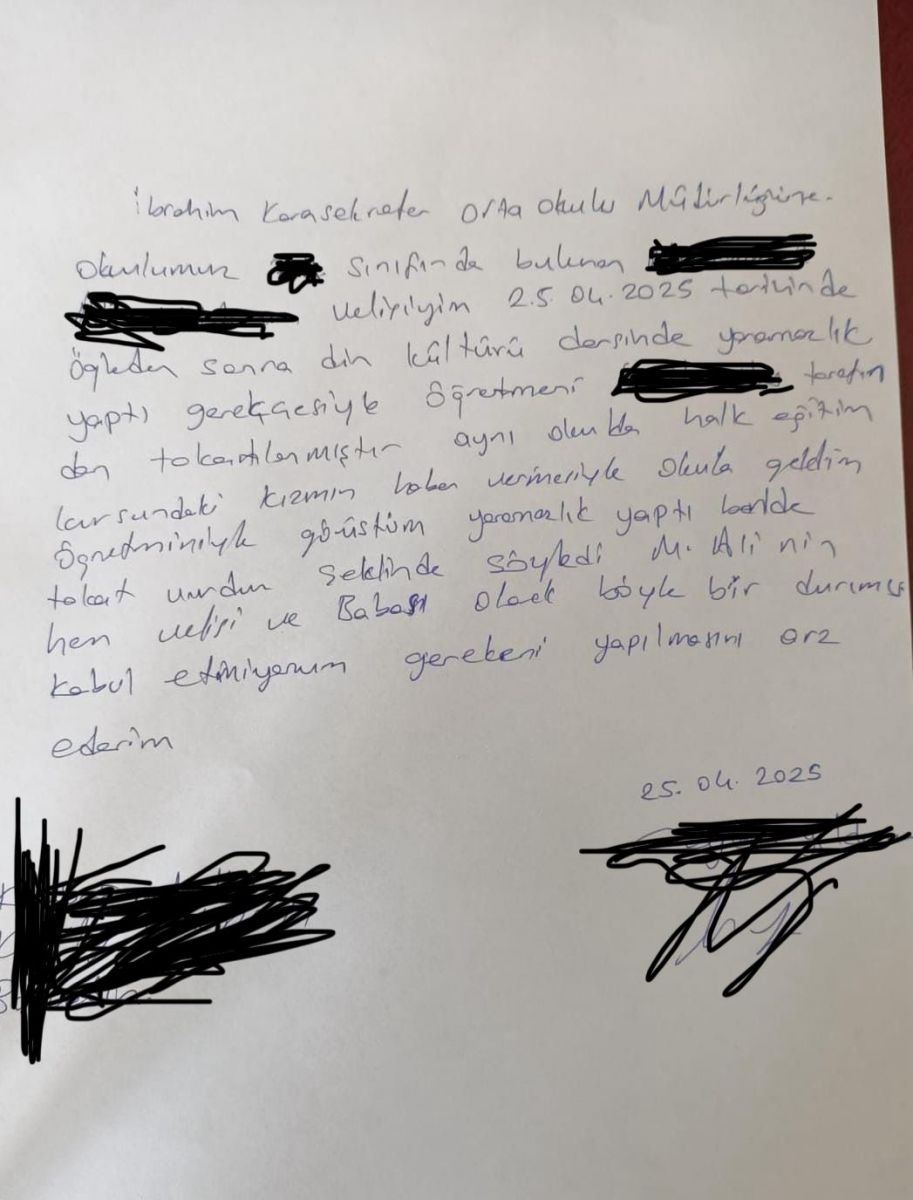 İbrahim Karasekreter Orta okulu Müdürlüğüne.
Okulumuz sınıfında bulunan
Velisiyim 25.04.2025 tarihinde
Öğleden sonra din kültürü dersinde yaramazlık
yaptı gerekçesiyle öğretmeni tarafın
dan tokatlanmıştır aynı okulda halk eğitim
kursundaki kızımın haber vermesiyle okula geldim
Öğretmeniyle görüştüm yaramazlık yaptı bende
tokat vurdun şeklinde söyledi M. Ali nin
hem velisi ve Babası olarak böyle bir durumu
kabul etmiyorum gerekeni yapılmasını arz
ederim
25.04.2025